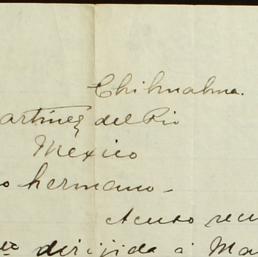 Chihuahua.
artínez del Rio
Mexico
o hermano-
Acuso recu
dirijida á Ma